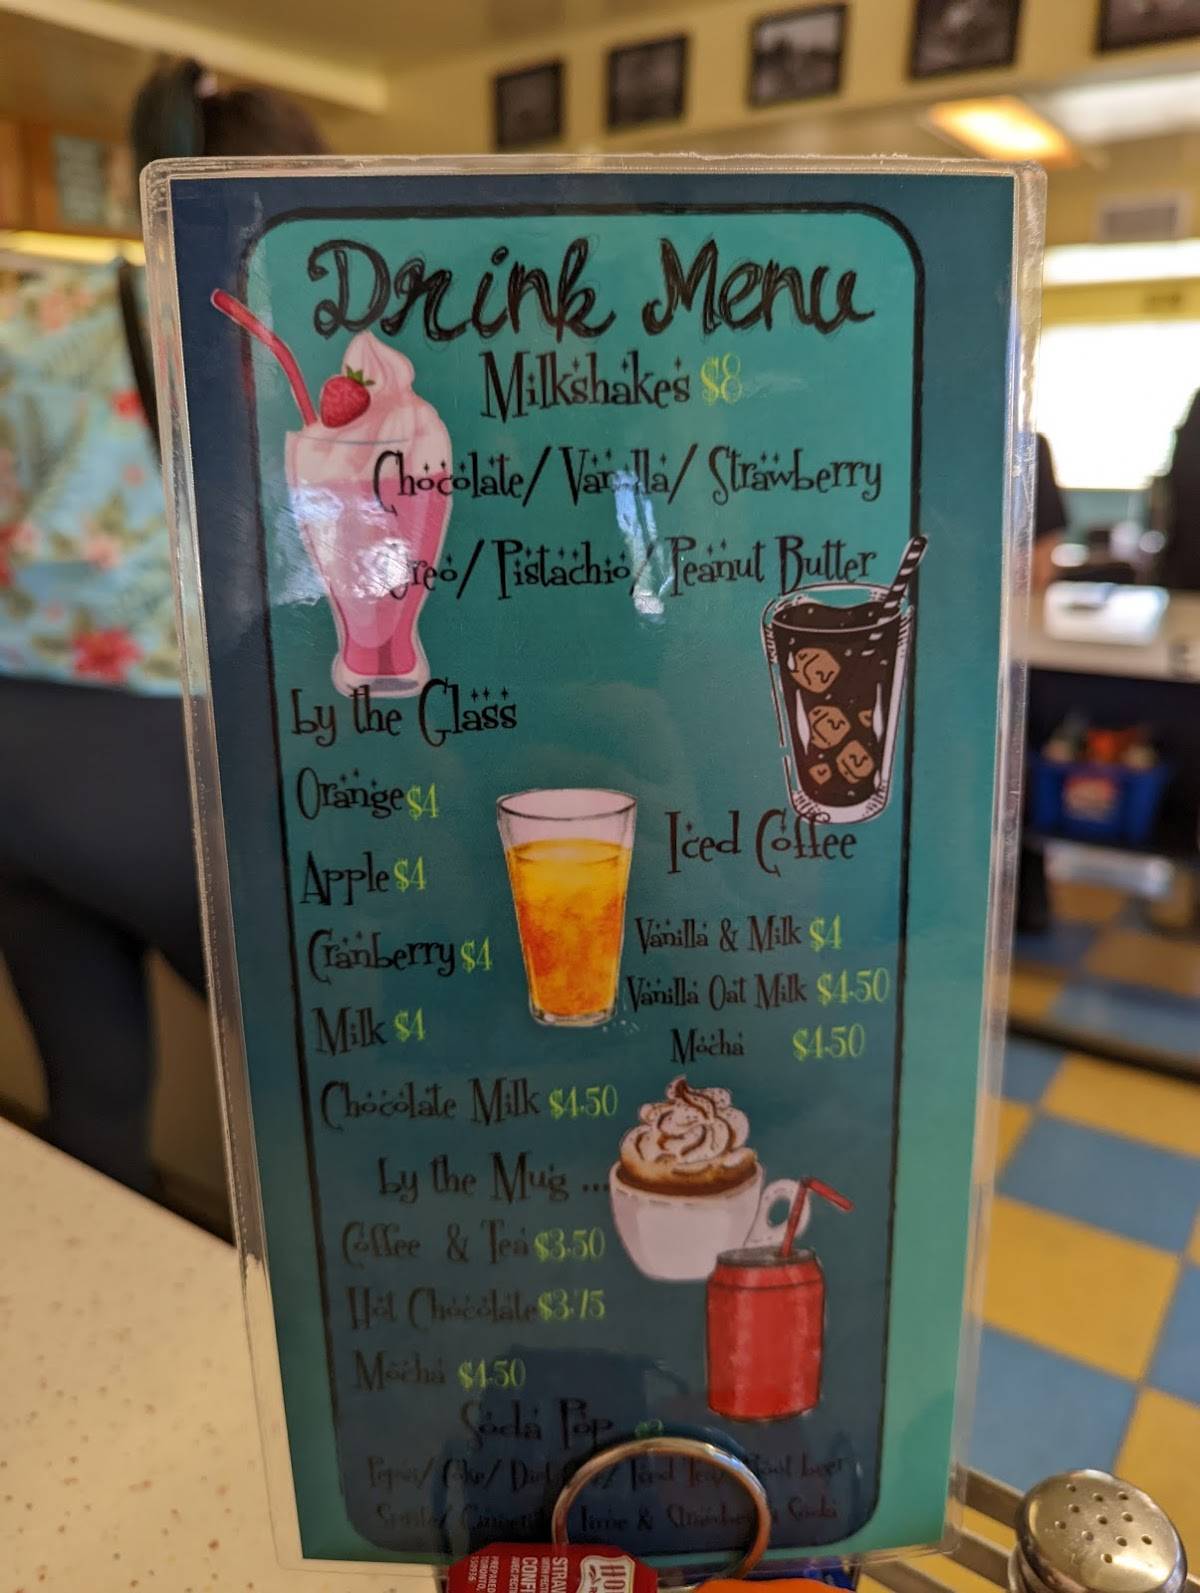 Drink Menu
Milkshakes $8
Chocolate/ Vanilla/ Strawberry
Oreo/ Pistachio/ Peanut Butter
by the Glass
Orange $4
Apple $4
Cranberry $4
Milk $4
Chocolate Milk $4.50
Iced Coffee
Vanilla & Milk $4
Vanilla Oat Milk $4.50
Mocha $4.50
by the Mug ...
Coffee & Tea $3.50
Hot Chocolate $3.75
Mocha $4.50
Soda Pop
Pepsi/ Coke/ Diet Iced Tea/ Root beer
Sprite/ Lime & Strawberry Soda
PREPARED
TORONTO,